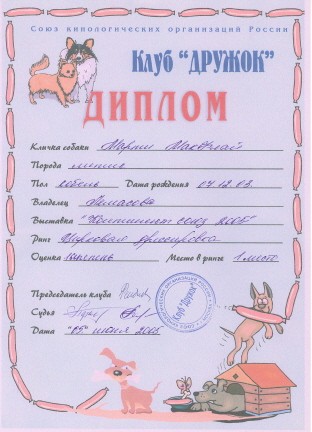 Союз кинологических организаций России
Клуб "ДРУЖОК"
ДИПЛОМ
Кличка собаки Мартин МакФлай
Порода метис
Пол кобель Дата рождения 07.12.03.
Владелец
Выставка союз 2005"
Ринг дрессировка
Оценка Место в ринге 1 место
Председатель клуба
Судья
Дата "05" июня 2005
Клуб "Дружок"